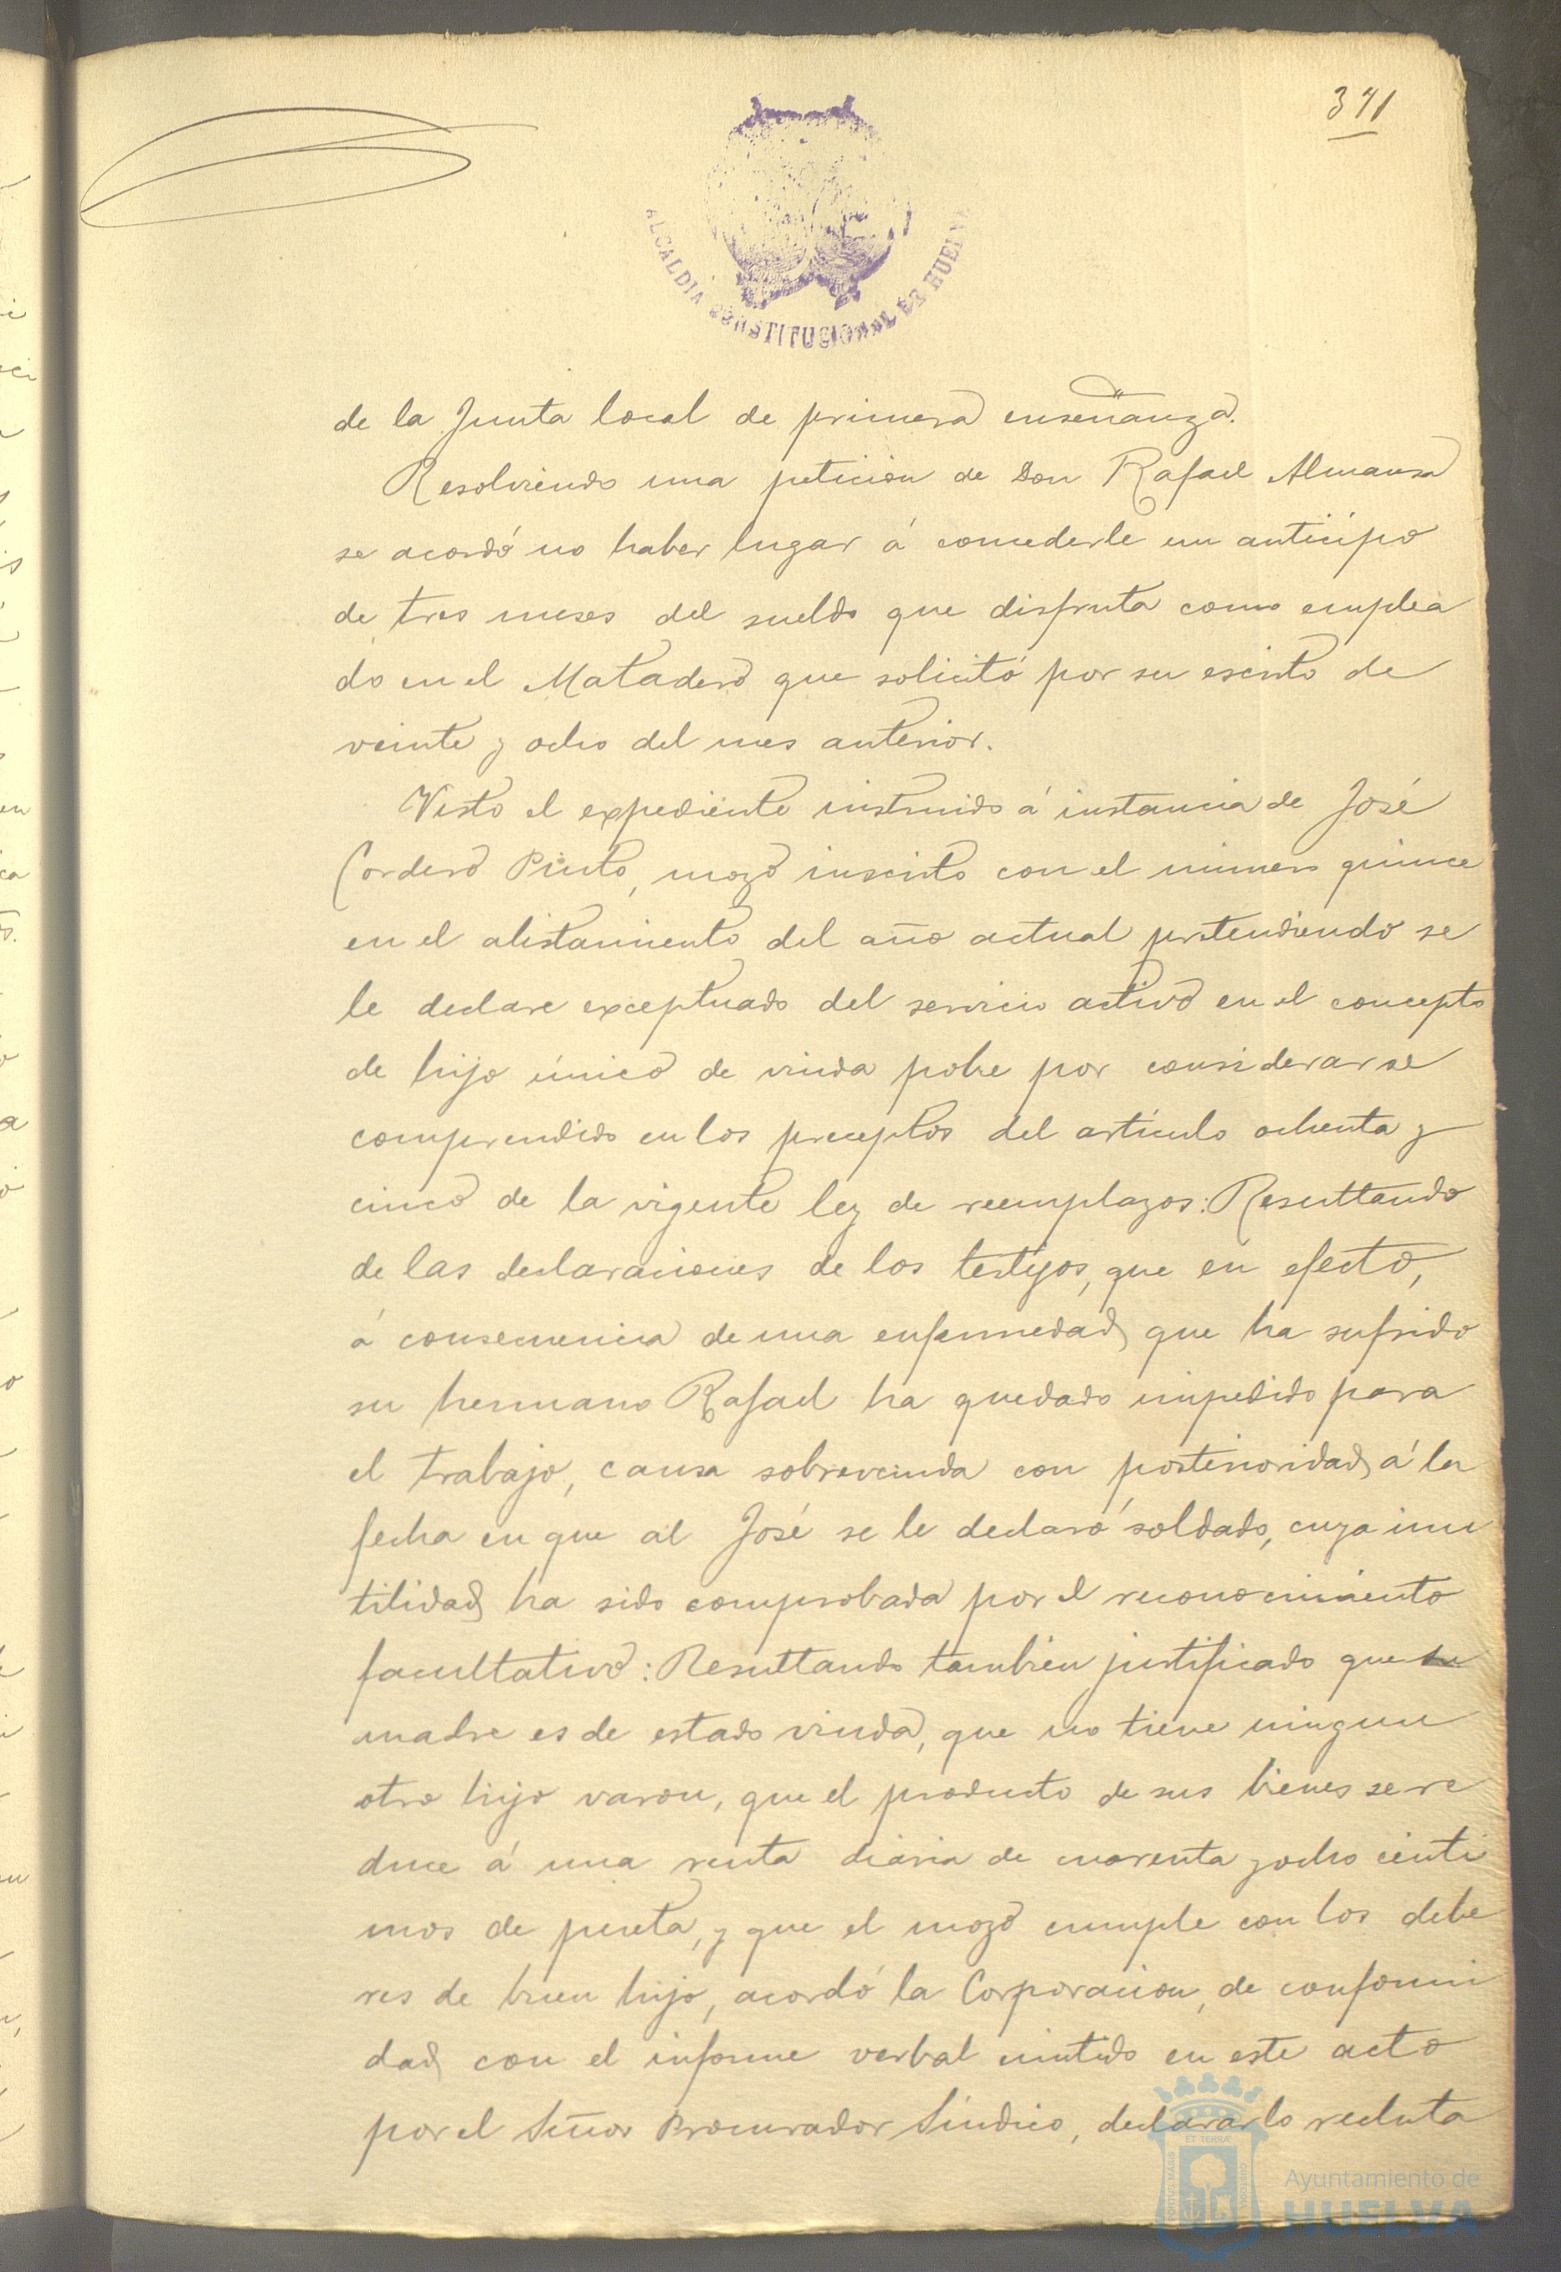 391
ALCALDIA CONSTITUCIONAL DE HUELVA
de la Junta local de primera enseñanza.
Resolviendo una peticion de Don Rafael Almansa
se acordó no haber lugar á concederle un anticipo
de tres meses del sueldo que disfruta como emplea
do en el Matadero que solicitó por su escrito de
veinte y ocho del mes anterior.
Visto el expediente instruido á instancia de José
Cordero Pinto, mozo inscrito con el número quince
en el alistamiento del año actual pretendiendo se
le declare exceptuado del servicio activo en el concepto
de hijo único de viuda pobre por considerarse
comprendido en los preceptos del artículo ochenta y
cinco de la vigente ley de reemplazos: Resultando
de las declaraciones de los testigos, que en efecto,
á consecuencia de una enfermedad que ha sufrido
su hermano Rafael ha quedado impedido para
el trabajo, causa sobrevenida con posterioridad á la
fecha en que al José se le declaró soldado, cuya inu
tilidad ha sido comprobada por el reconocimiento
facultativo: Resultando tambien justificado que su
madre es de estado viuda, que no tiene ningun
otro hijo varon, que el producto de sus bienes se re
duce á una renta diaria de cuarenta y ocho cénti
mos de peseta, y que el mozo cumple con los debe
res de buen hijo, acordó la Corporacion, de conformi
dad con el informe verbal emitido en este acto
por el Señor Procurador Síndico, declararlo recluta
Ayuntamiento de
HUELVA